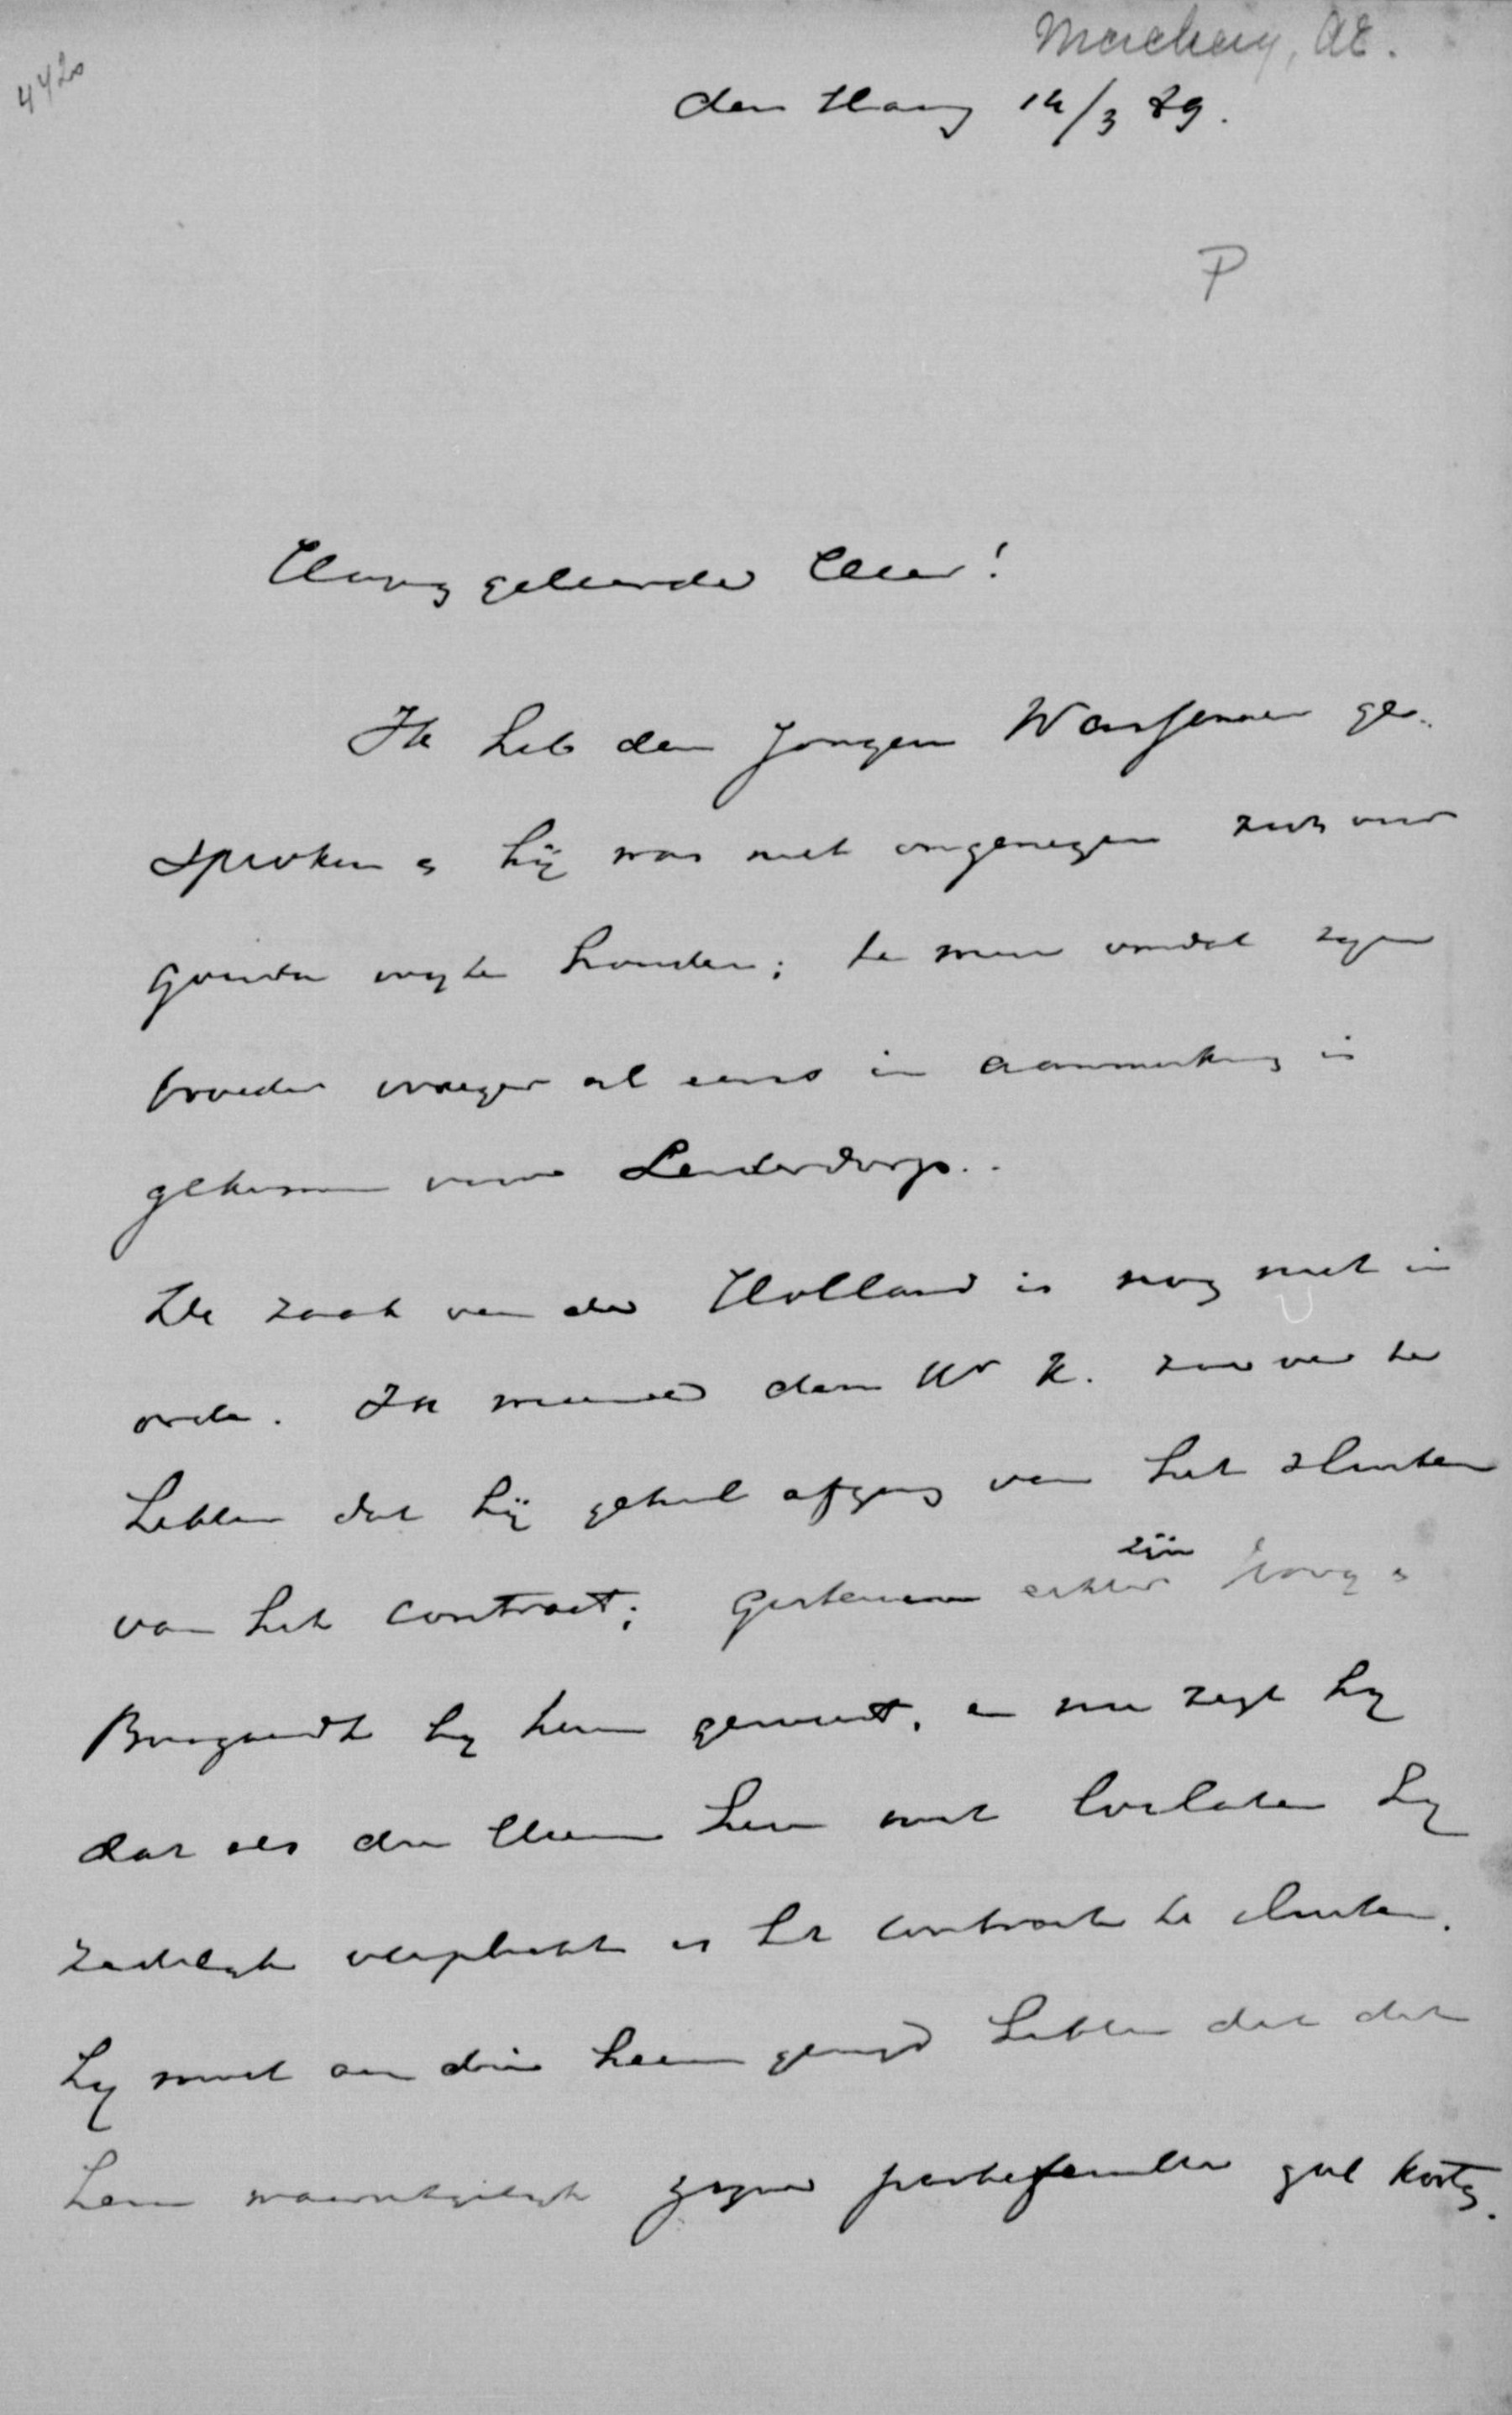 4420
Mackay, AE.
den Haag 14/3 89.
P
Hoog geleerde Heer!
Ik heb den jongen Wassenaer ge-
sproken & hij was niet ongenegen zich voor
Gouda vrij te houden; te meer omdat zijn
broeder vroeger al eens in aanmerking is
gekomen voor Leiderdorp.
De zaak van de Holland is nog niet in
orde. Ik meende dan Mr K. zoo ver te
hebben dat hij geheel afging van het sluiten
van het contract; Gisteren echter zijn &
bij hem geweest, en nu zegt hij
dat als die Heeren hem niet loslaten hij
zedelijk verplicht is het contract te sluiten.
hij moet aan die heeren gezegd hebben dat dit
hem waarschijnlijk zijne portefeuille zal kosten.